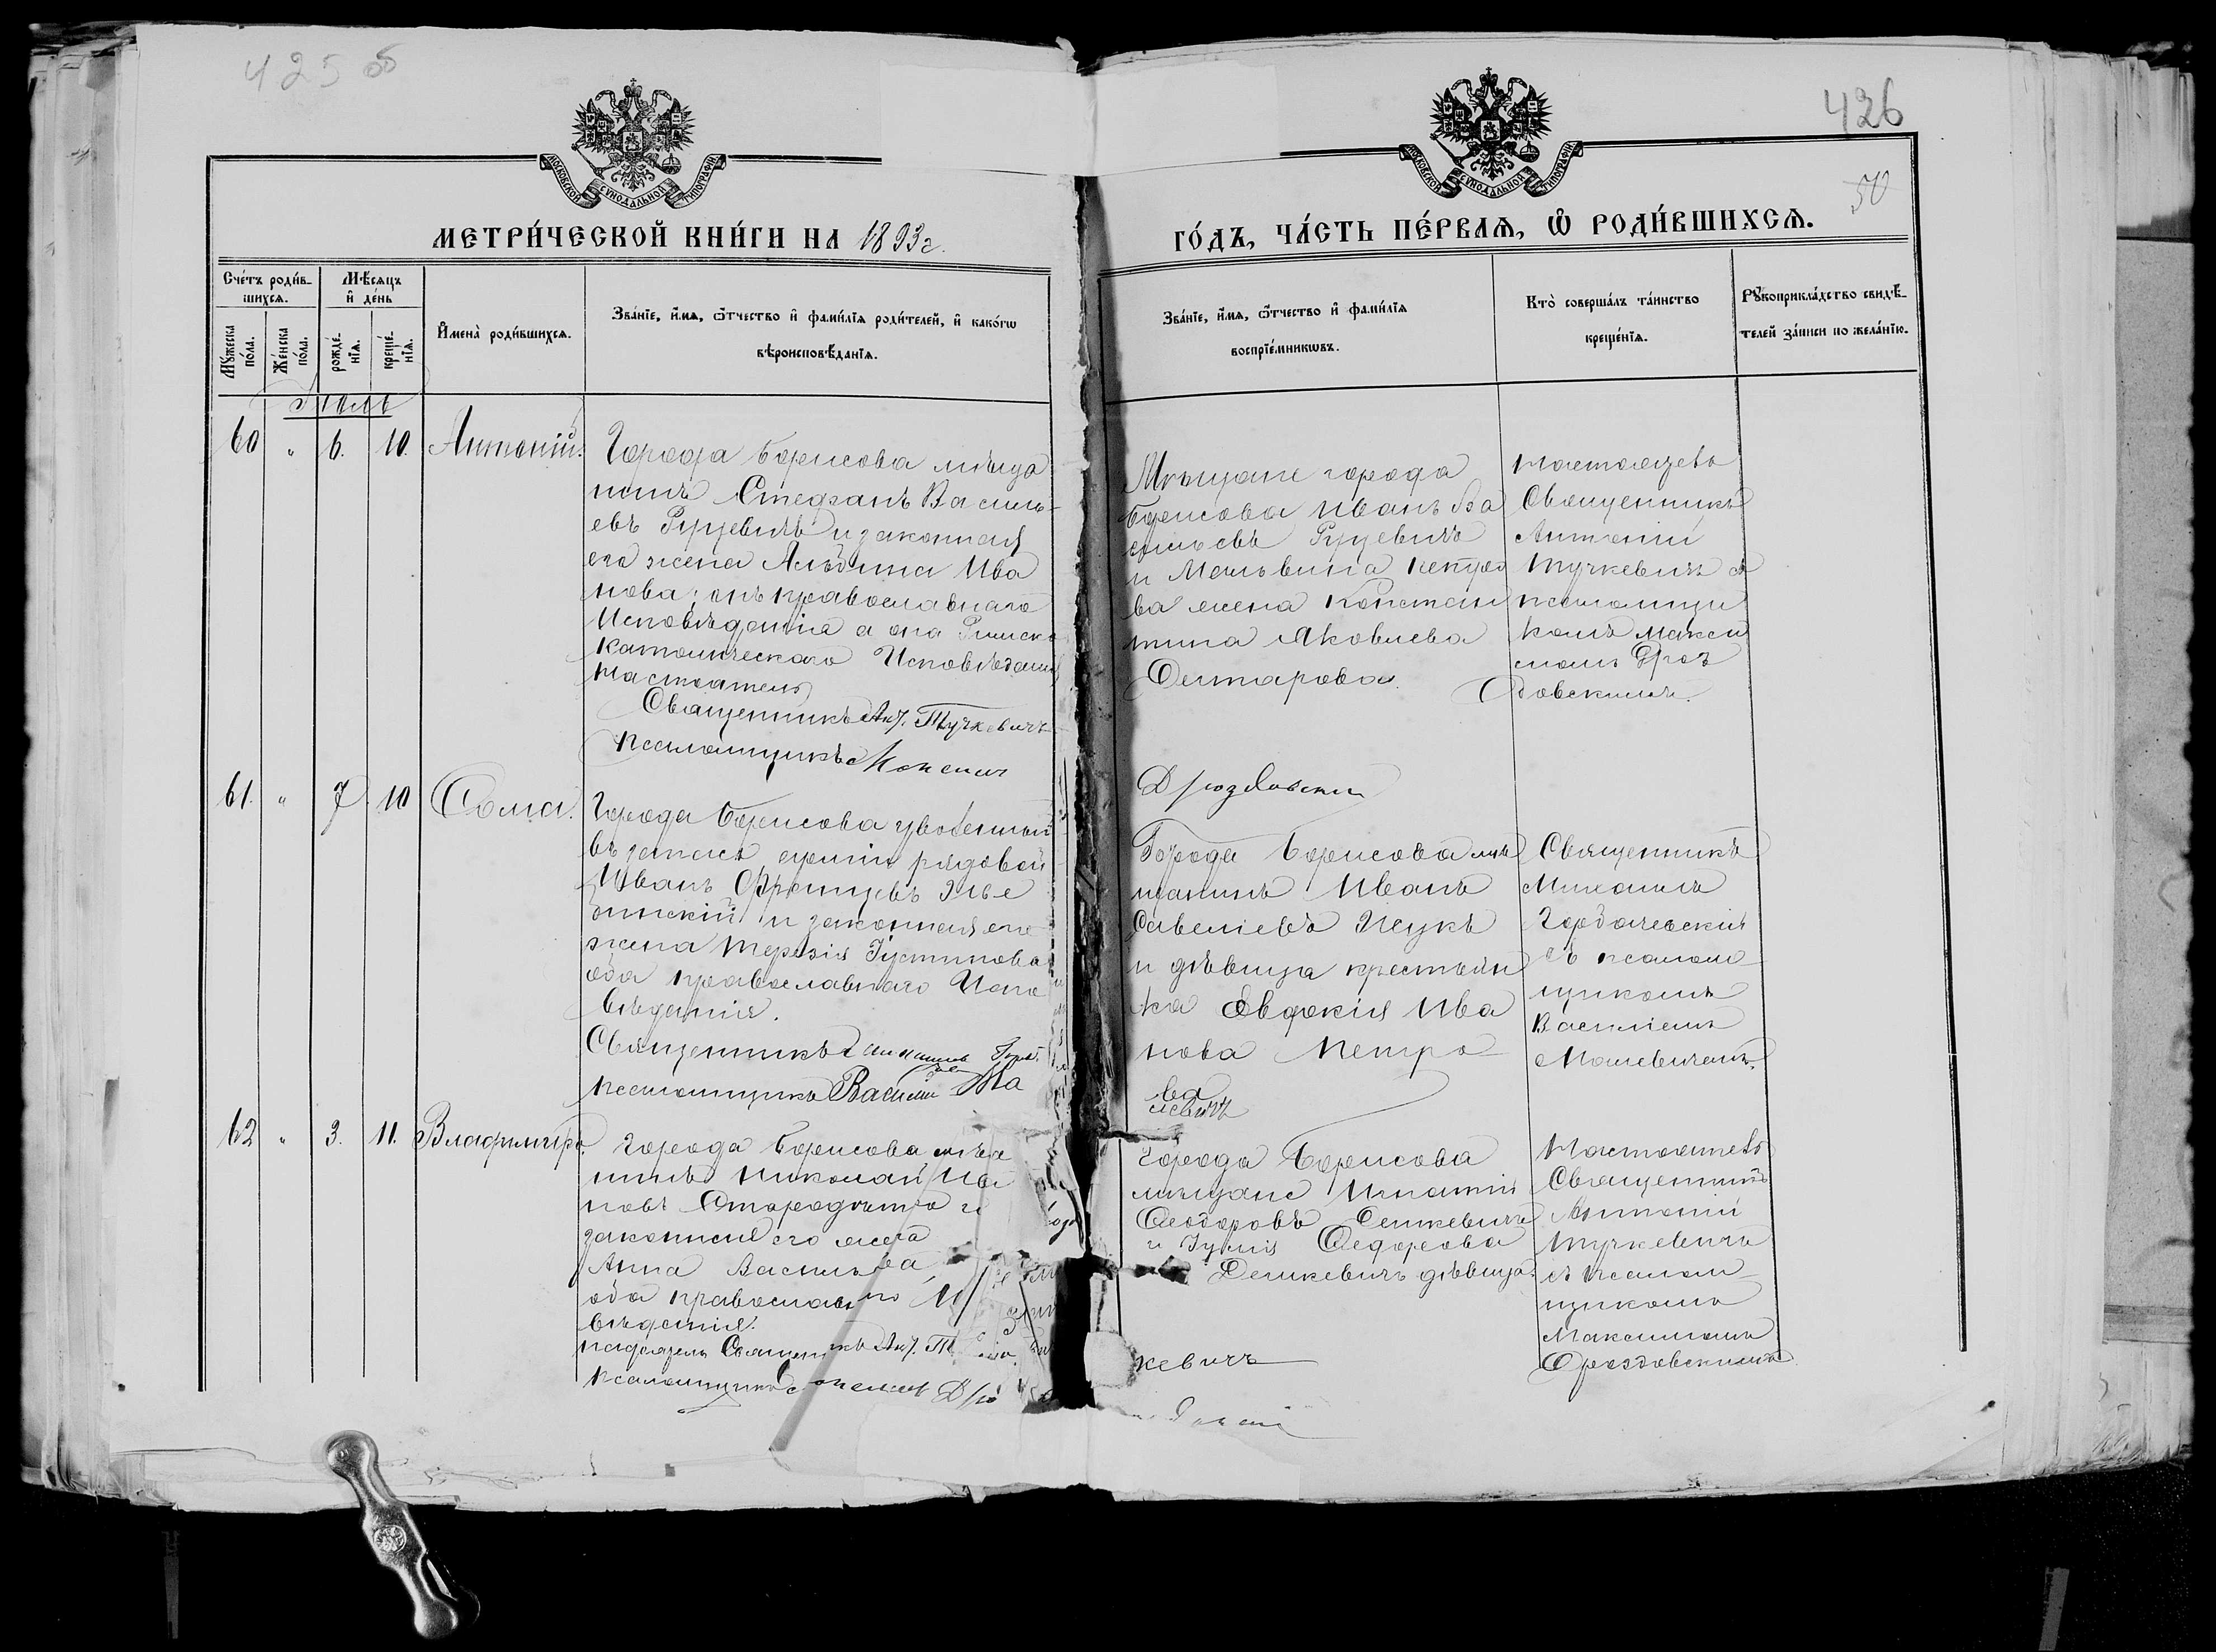 425 об
426
50
МОСКОВСКОЙ СѴНОДАЛЬНОЙ ТИПОГРАФІИ
МОСКОВСКОЙ СѴНОДАЛЬНОЙ ТИПОГРАФІИ
МЕТРИ́ЧЕСКОЙ КНИ́ГИ НА 1893 г.
ГО́ДЪ, ЧА́СТЬ ПЕ́РВАѦ, Ѡ҆ РОДИ́ВШИХСѦ.
Сче́тъ роди́в-
шихсѧ.
Мѣ́сѧцъ
и҆ де́нь
Мꙋ́жеска
по́ла.
Же́нска
по́ла.
рожде́-
нїѧ.
креще́-
нїѧ.
И҆мена̀ роди́вшихсѧ.
Зва́нїе, и҆́мѧ, ѻ҆́тчество и҆ фами́лїѧ роди́телей, и҆ како́гѡ
вѣроисповѣ́данїѧ.
Зва́нїе, и҆́мѧ, ѻ҆́тчество и҆ фами́лїѧ
воспрїе́мникѡвъ.
Кто̀ соверша́лъ та́инство
креще́нїѧ.
Рꙋкоприкла́дство свидѣ́-
телей за́писи по жела́нїю.
Іюль
60 " 6. 10. Антоній.
Города Борисова мѣща
нинъ Стефанъ Василь-
евъ Руцевичъ и законная
его жена Альбина Ива
нова; онъ православнаго
Исповѣданія а она Римско
Католическаго Исповѣданія
Настоятель
Священникъ Ант. Тучкевичъ
Псаломщикъ Максимъ
Мѣщане города
Борисова Иванъ Ва
сильевъ Руцевичъ
и Мальвина
ва жена Констан
тина Яковлева
Дроздовскій
Настоятель
Священникъ
Антоній
Тучкевичъ съ
псаломщи
комъ Макси
момъ Дроз
довскимъ.
61. " 7. 10 Ѳома.
Города Борисова уволенный
въ запасъ арміи рядовой
Иванъ Францевъ
и законная его
жена Терезія Іустинова
оба православнаго Испо
вѣданія.
Священникъ Михаилъ
Псаломщикъ Василій Ма
Города Борисова мѣ
щанинъ Иванъ
Савеліевъ
и дѣвица крестьян
ка Евдокія Ива
нова Петро
ва
левичъ
Священникъ
Михаилъ
Горбачевскій
съ псалом
щикомъ
Василіемъ
Малевичемъ.
62 " 3. 11. Владимиръ.
Города Борисова мѣща
нинъ Николай Ива
новъ и
законная его жена
Анна Василь ва
оба православн го И
вѣданія.
Священникъ Ант. Т
Псаломщикъ Дро
Города Борисова
мѣщане Игнатій
Ѳеодоровъ Демкевичъ
и Іулія Ѳедорова
Демкевичъ дѣвица.
кевичъ
Настоятель
Священникъ
Антоній
Тучкевичъ
съ псалом
щикомъ
Максимомъ
Дроздовскимъ.